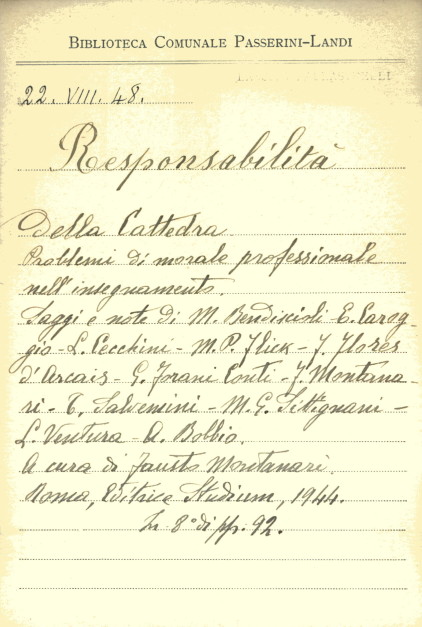 BIBLIOTECA COMUNALE PASSERINI-LANDI
22. VIII. 48.
Responsabilità
della Cattedra
Problemi di morale professionale
nell'insegnamento.
Saggi e note di M. Bendiscioli - E. Carog-
gio - L. Cecchini - M. P. Flick - F. Flores
d'Arcais - G. Forani Conti - F. Montana-
ri - T. Salvemini - M. G. Settignani -
L. Ventura - A. Bobbio.
A cura di Fausto Montanari.
Roma, Editrice Studium, 1944.
In 8° di pp. 92.